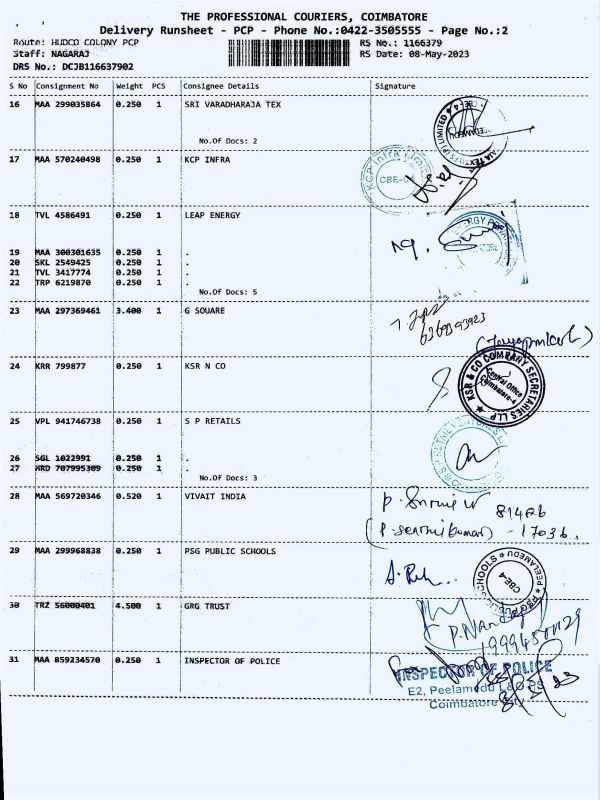 THE PROFESSIONAL COURIERS, COIMBATORE
Delivery Runsheet - PCP - Phone No.:0422-3505555 - Page No.:2
Route: HUDCO COLONY PCP RS No.: 1166379
Staff: NAGARAJ RS Date: 08-May-2023
DRS No.: DCJB116637902
S No Consignment No Weight PCS Consignee Details Signature
16 MAA 299035864 0.250 1 SRI VARADHARAJA TEX
No.Of Docs: 2
17 MAA 570240498 0.250 1 KCP INFRA
KCP Infra Limited
CBE-
18 TVL 4586491 0.250 1 LEAP ENERGY
19 MAA 300301635 0.250 1 .
20 SKL 2549425 0.250 1 .
21 TVL 3417774 0.250 1 .
22 TRP 6219870 0.250 1 .
No.Of Docs: 5
23 MAA 297369461 3.400 1 G SOUARE
24 KRR 799877 0.250 1 KSR N CO
KSR & CO COMPANY SECRETARIES LLP
Central Office
Coimbatore-4
25 VPL 941746738 0.250 1 S P RETAILS
26 SGL 1022991 0.250 1 .
27 HRD 707995309 0.250 1 .
No.Of Docs: 3
28 MAA 569720346 0.520 1 VIVAIT INDIA
29 MAA 299968838 0.250 1 PSG PUBLIC SCHOOLS
PSG PUBLIC SCHOOLS PEELAMEDU
CBE-4
30 TRZ 56000401 4.500 1 GRG TRUST
31 MAA 859234570 0.250 1 INSPECTOR OF POLICE
INSPECTOR OF POLICE
E2, Peelamedu L&O PS
Coimbatore City